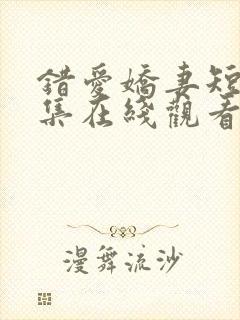 錯愛嬌妻短
集在綫觀看
漫舞流沙